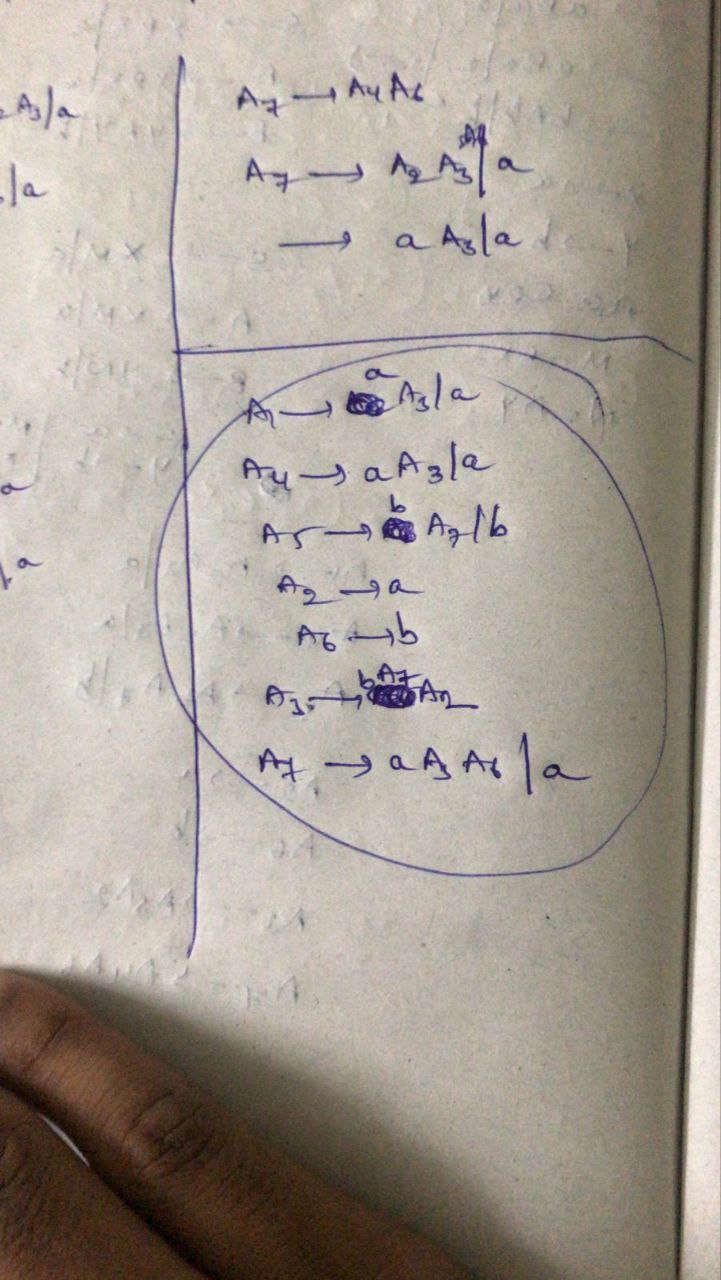 A3|a
|a
A7 → A4 A6
A7 → A2 A3 | a
→ a A3 | a
a
a
A1 → a A3 | a
A4 → a A3 | a
A5 → b A7 | b
A2 → a
A6 → b
A3 → b A7 A2
A7 → a A3 A6 | a